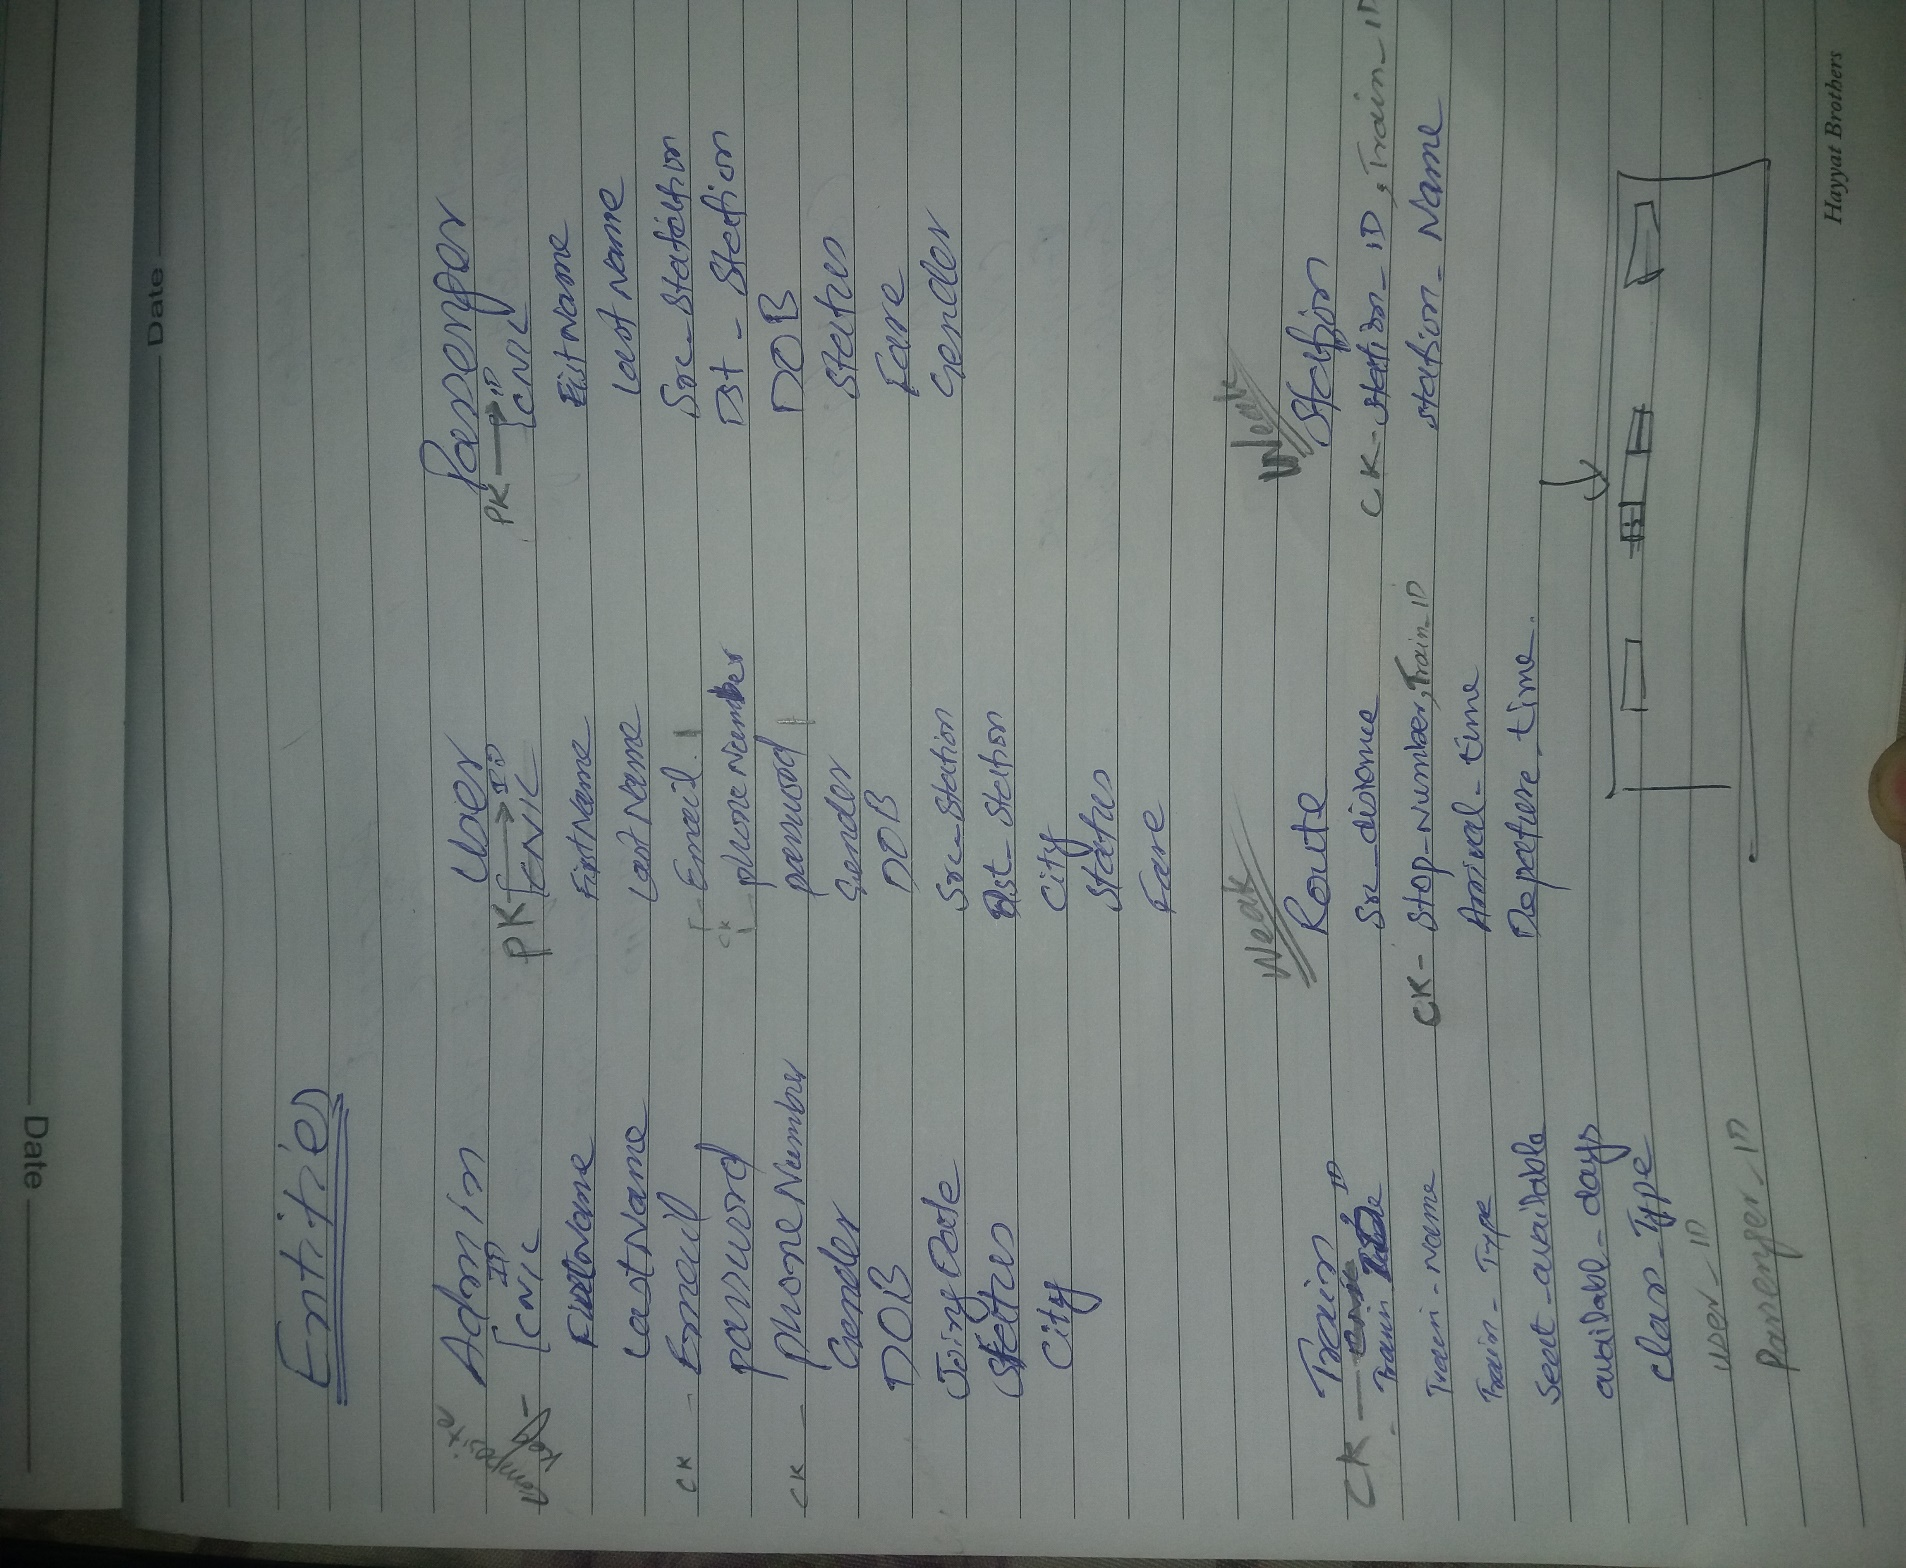 Date
Date
Entities
Admin
Composite Key - [ ID
CNIC
FirstName
LastName
CK - Email
password
CK - phoneNumber
Gender
DOB
JoingDate
Status
City
User
PK [ → ID
CNIC
FirstName
LastName
Email
CK
phoneNumber
password
Gender
DOB
Src_Station
Dst_Station
City
Status
Fare
Passenger
PK → [ ID
CNIC
FistName
Last Name
Src_Station
Dst_Station
DOB
Status
Fare
Gender
Train
CK - Train ID
Train-Name
Train-Type
Seat-available
available-days
class-Type
User_ID
Passenger_ID
Weak
Route
Src_distance
CK - Stop-Number, Train_ID
Arrival-time
Depature_time.
Weak
Station
CK - Station_ID, Train_ID
station_Name
Hayyat Brothers